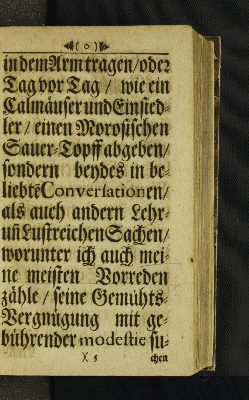 ( o )
in dem Arm tragen/ oder
Tag vor Tag / wie ein
Calmäuser und Einsied-
ler / einen Morosischen
Sauer-Topff abgeben/
sondern beydes in be-
liebtē Conversationen/
als auch andern Lehr-
uñ Lustreichen Sachen/
worunter ich auch mei-
ne meisten Vorreden
zähle / seine Gemühts-
Vergnügung mit ge-
bührender modestie su-
X 5 chen